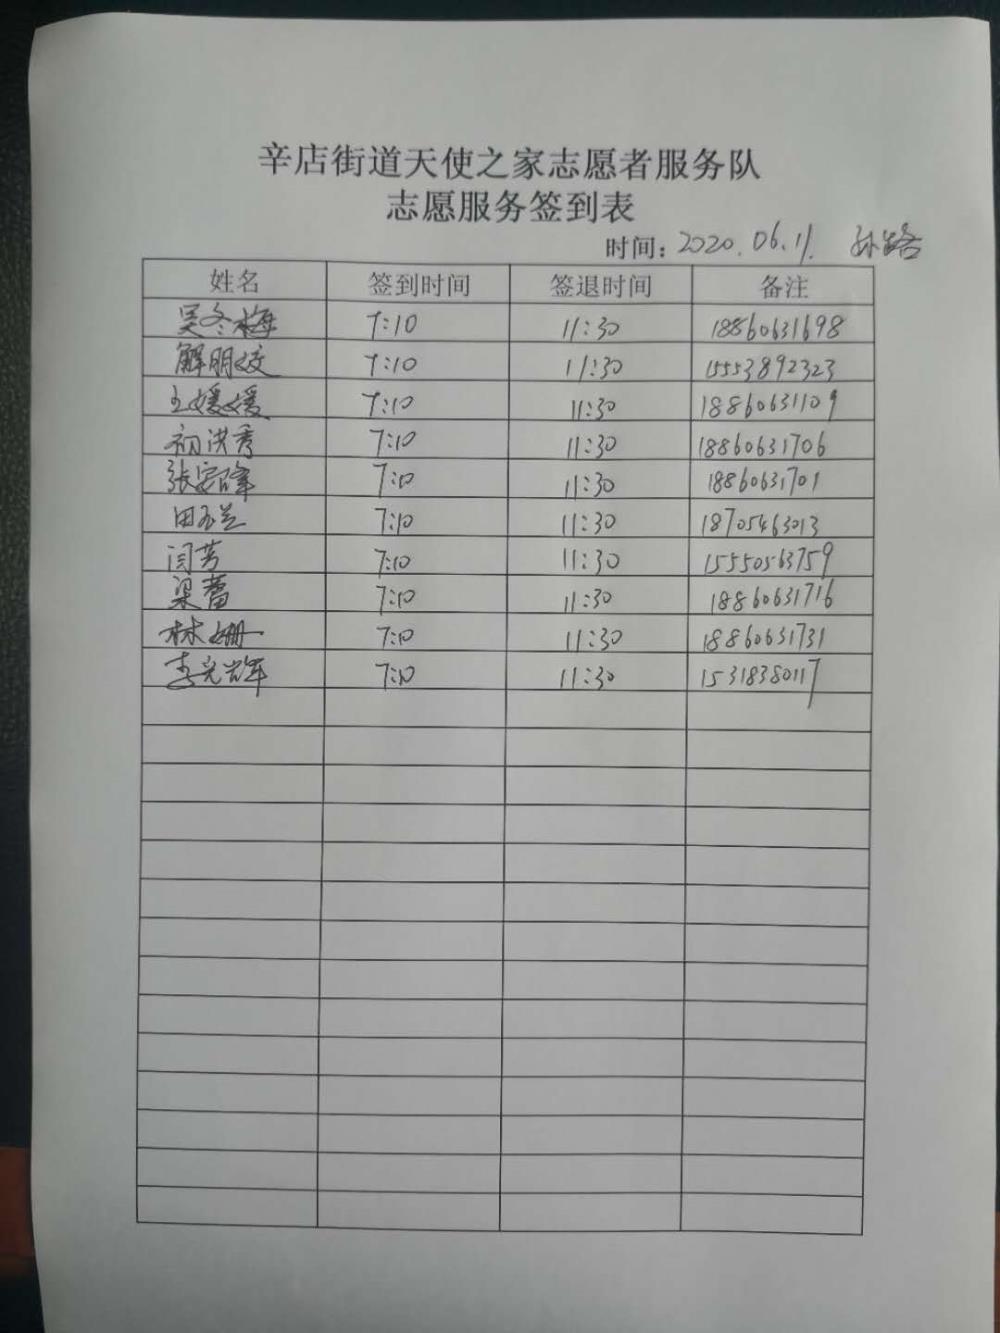 辛店街道天使之家志愿者服务队
志愿服务签到表
时间：2020.06.11. 孙路
姓名 签到时间 签退时间 备注
吴冬梅 7:10 11:30 18860631698
解朋姣 7:10 11:30 15553892323
王媛媛 7:10 11:30 18860631109
初洪秀 7:10 11:30 18860631706
张宏峰 7:10 11:30 18860631701
田玉兰 7:10 11:30 18705463013
闫芳 7:10 11:30 15550563759
梁蕾 7:10 11:30 18860631716
林姗 7:10 11:30 18860631731
李光辉 7:10 11:30 15318380117